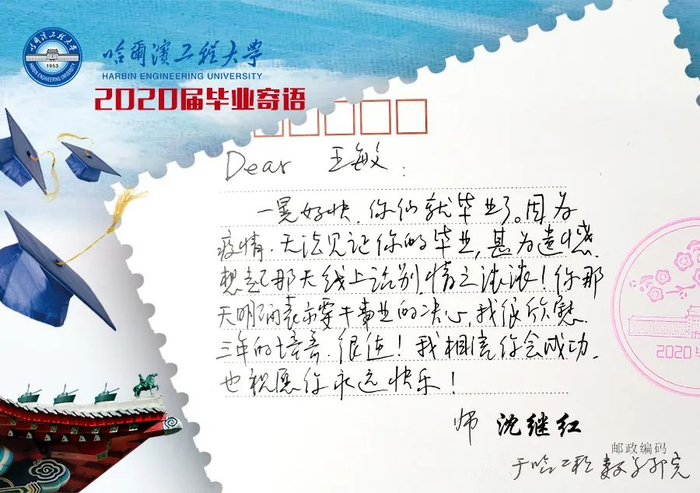 哈尔滨工程大学
HARBIN ENGINEERING UNIVERSITY
2020届毕业寄语
Dear 王敏:
一晃好快,你们就毕业了。因为
疫情,无法见证你的毕业,甚为遗憾.
想起那天线上话别,情意浓浓!你那
天明确表示要干事业的决心,我很欣慰.
三年的培养,很值!我相信你会成功.
也祝愿你永远快乐!
师 沈继红
邮政编码
于哈工程数学
2020
1953